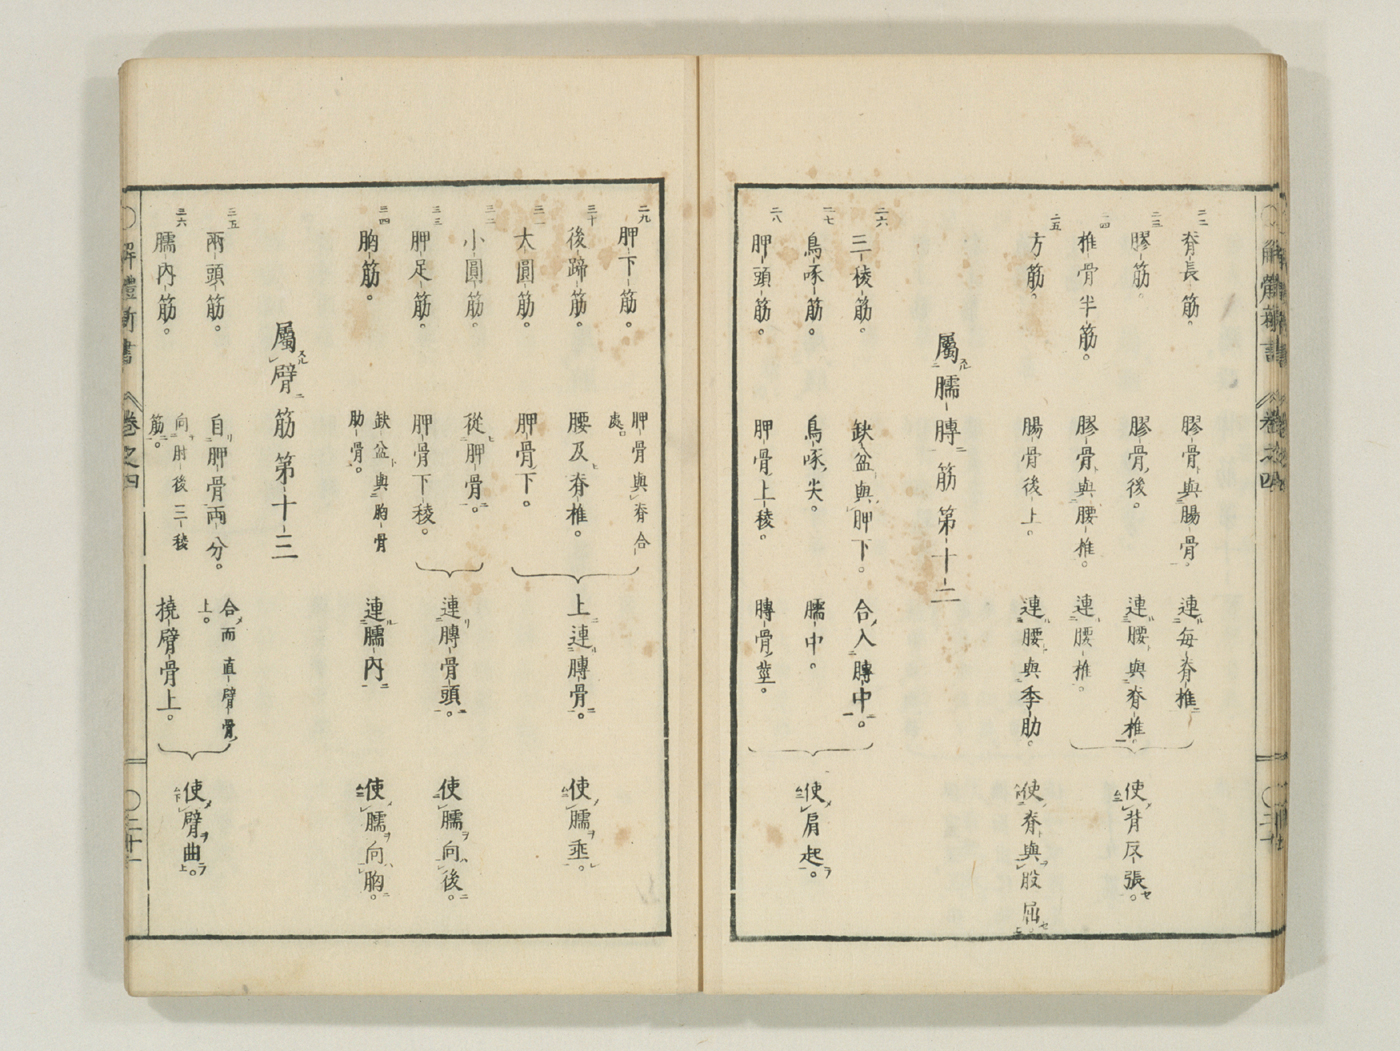 二二
脊長筋。
膠骨與腸骨。
連每脊椎
二三
膠筋。
膠骨後。
連腰與脊椎。
使背反張。
二四
椎骨半筋。
膠骨與腰椎。
連腰椎。
二五
方筋。
腸骨後上。
連腰與季肋。
使脊與股屈
屬臑膞筋第十二
二六
三稜筋。
缺盆與胛下。
合入膞中。
二七
烏啄筋。
烏啄尖。
臑中。
使肩起。
二八
胛頭筋。
胛骨上稜。
膞骨莖。
二九
胛下筋。
胛骨與脊合
處。
三十
後蹄筋。
腰及脊椎。
上連膞骨。
使臑垂。
三一
大圓筋。
胛骨下。
三二
小圓筋。
從胛骨。
三三
胛足筋。
胛骨下稜。
連膞骨頭。
使臑向後。
三四
胸筋。
缺盆與胸骨
肋骨。
連臑内
使臑向胸。
屬臂筋第十三
三五
兩頭筋。
自胛骨兩分。
合而直臂骨
上。
三六
臑内筋。
向肘後三稜
筋。
撓臂骨上。
使臂曲。
解體新書 卷之四
二十一